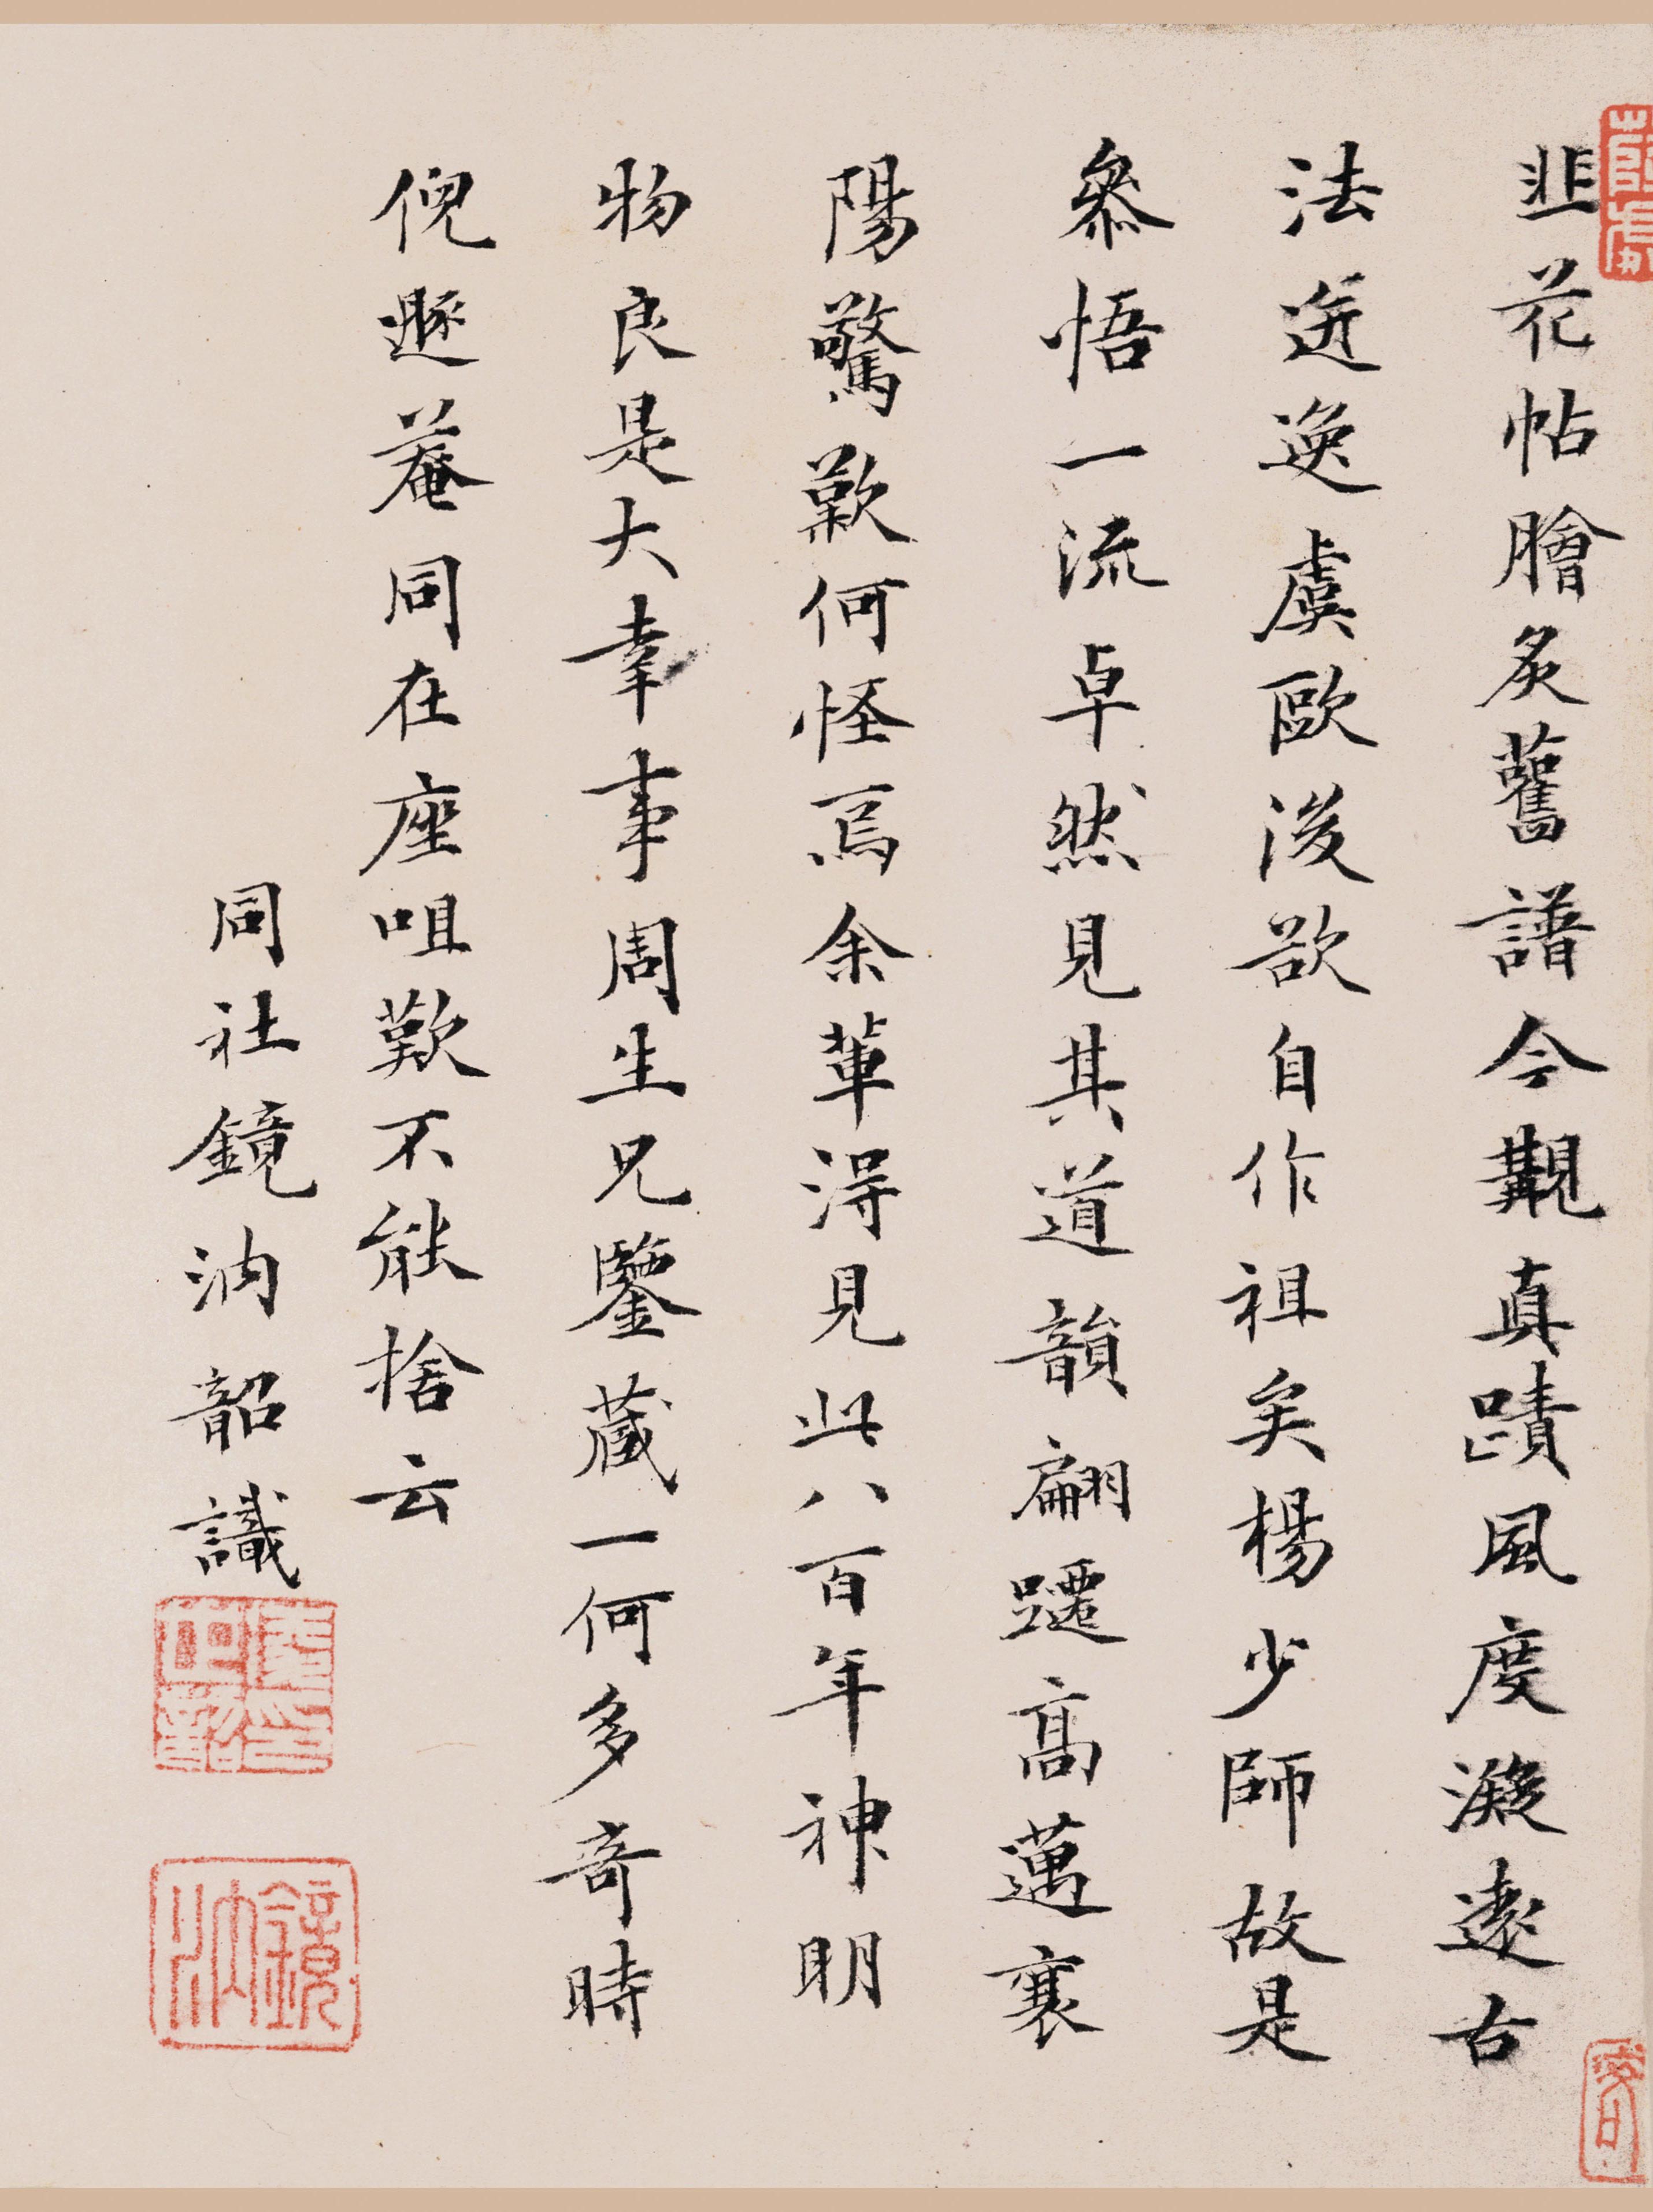 韭花帖膾炙舊譜今觀真蹟風度凝遠古
法迸逸虞歐後欲自作祖矣楊少師故是
參悟一流卓然見其道韻翩躚高邁襄
陽驚歎何怪焉余輩得見此八百年神明
物良是大幸事周生兄鑒藏一何多奇時
倪遯菴同在座咀歎不能捨云
同社鏡汭韶識
鏡汭